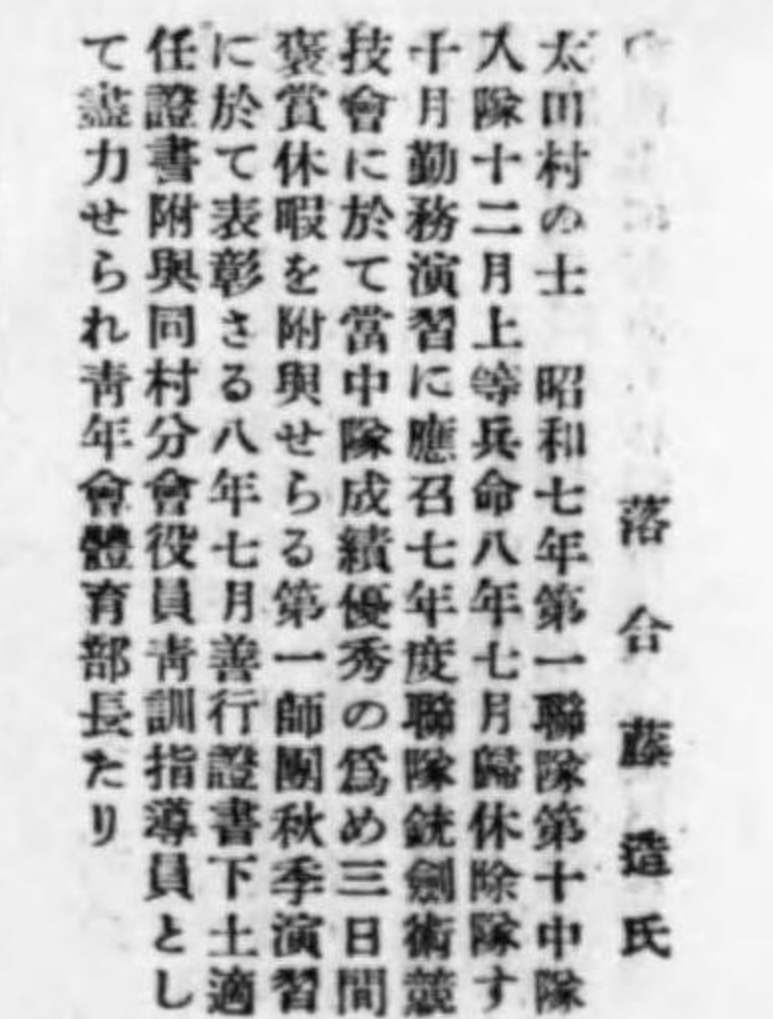 落合藤造氏
太田村の士　昭和七年第一聯隊第十中隊
入隊十二月上等兵命八年七月歸休除隊す
十月勤務演習に應召七年度聯隊銃劍術競
技會に於て當中隊成績優秀の爲め三日間
褒賞休暇を附與せらる第一師團秋季演習
に於て表彰さる八年七月善行證書下士適
任證書附與同村分會役員靑訓指導員とし
て盡力せられ靑年會體育部長たり